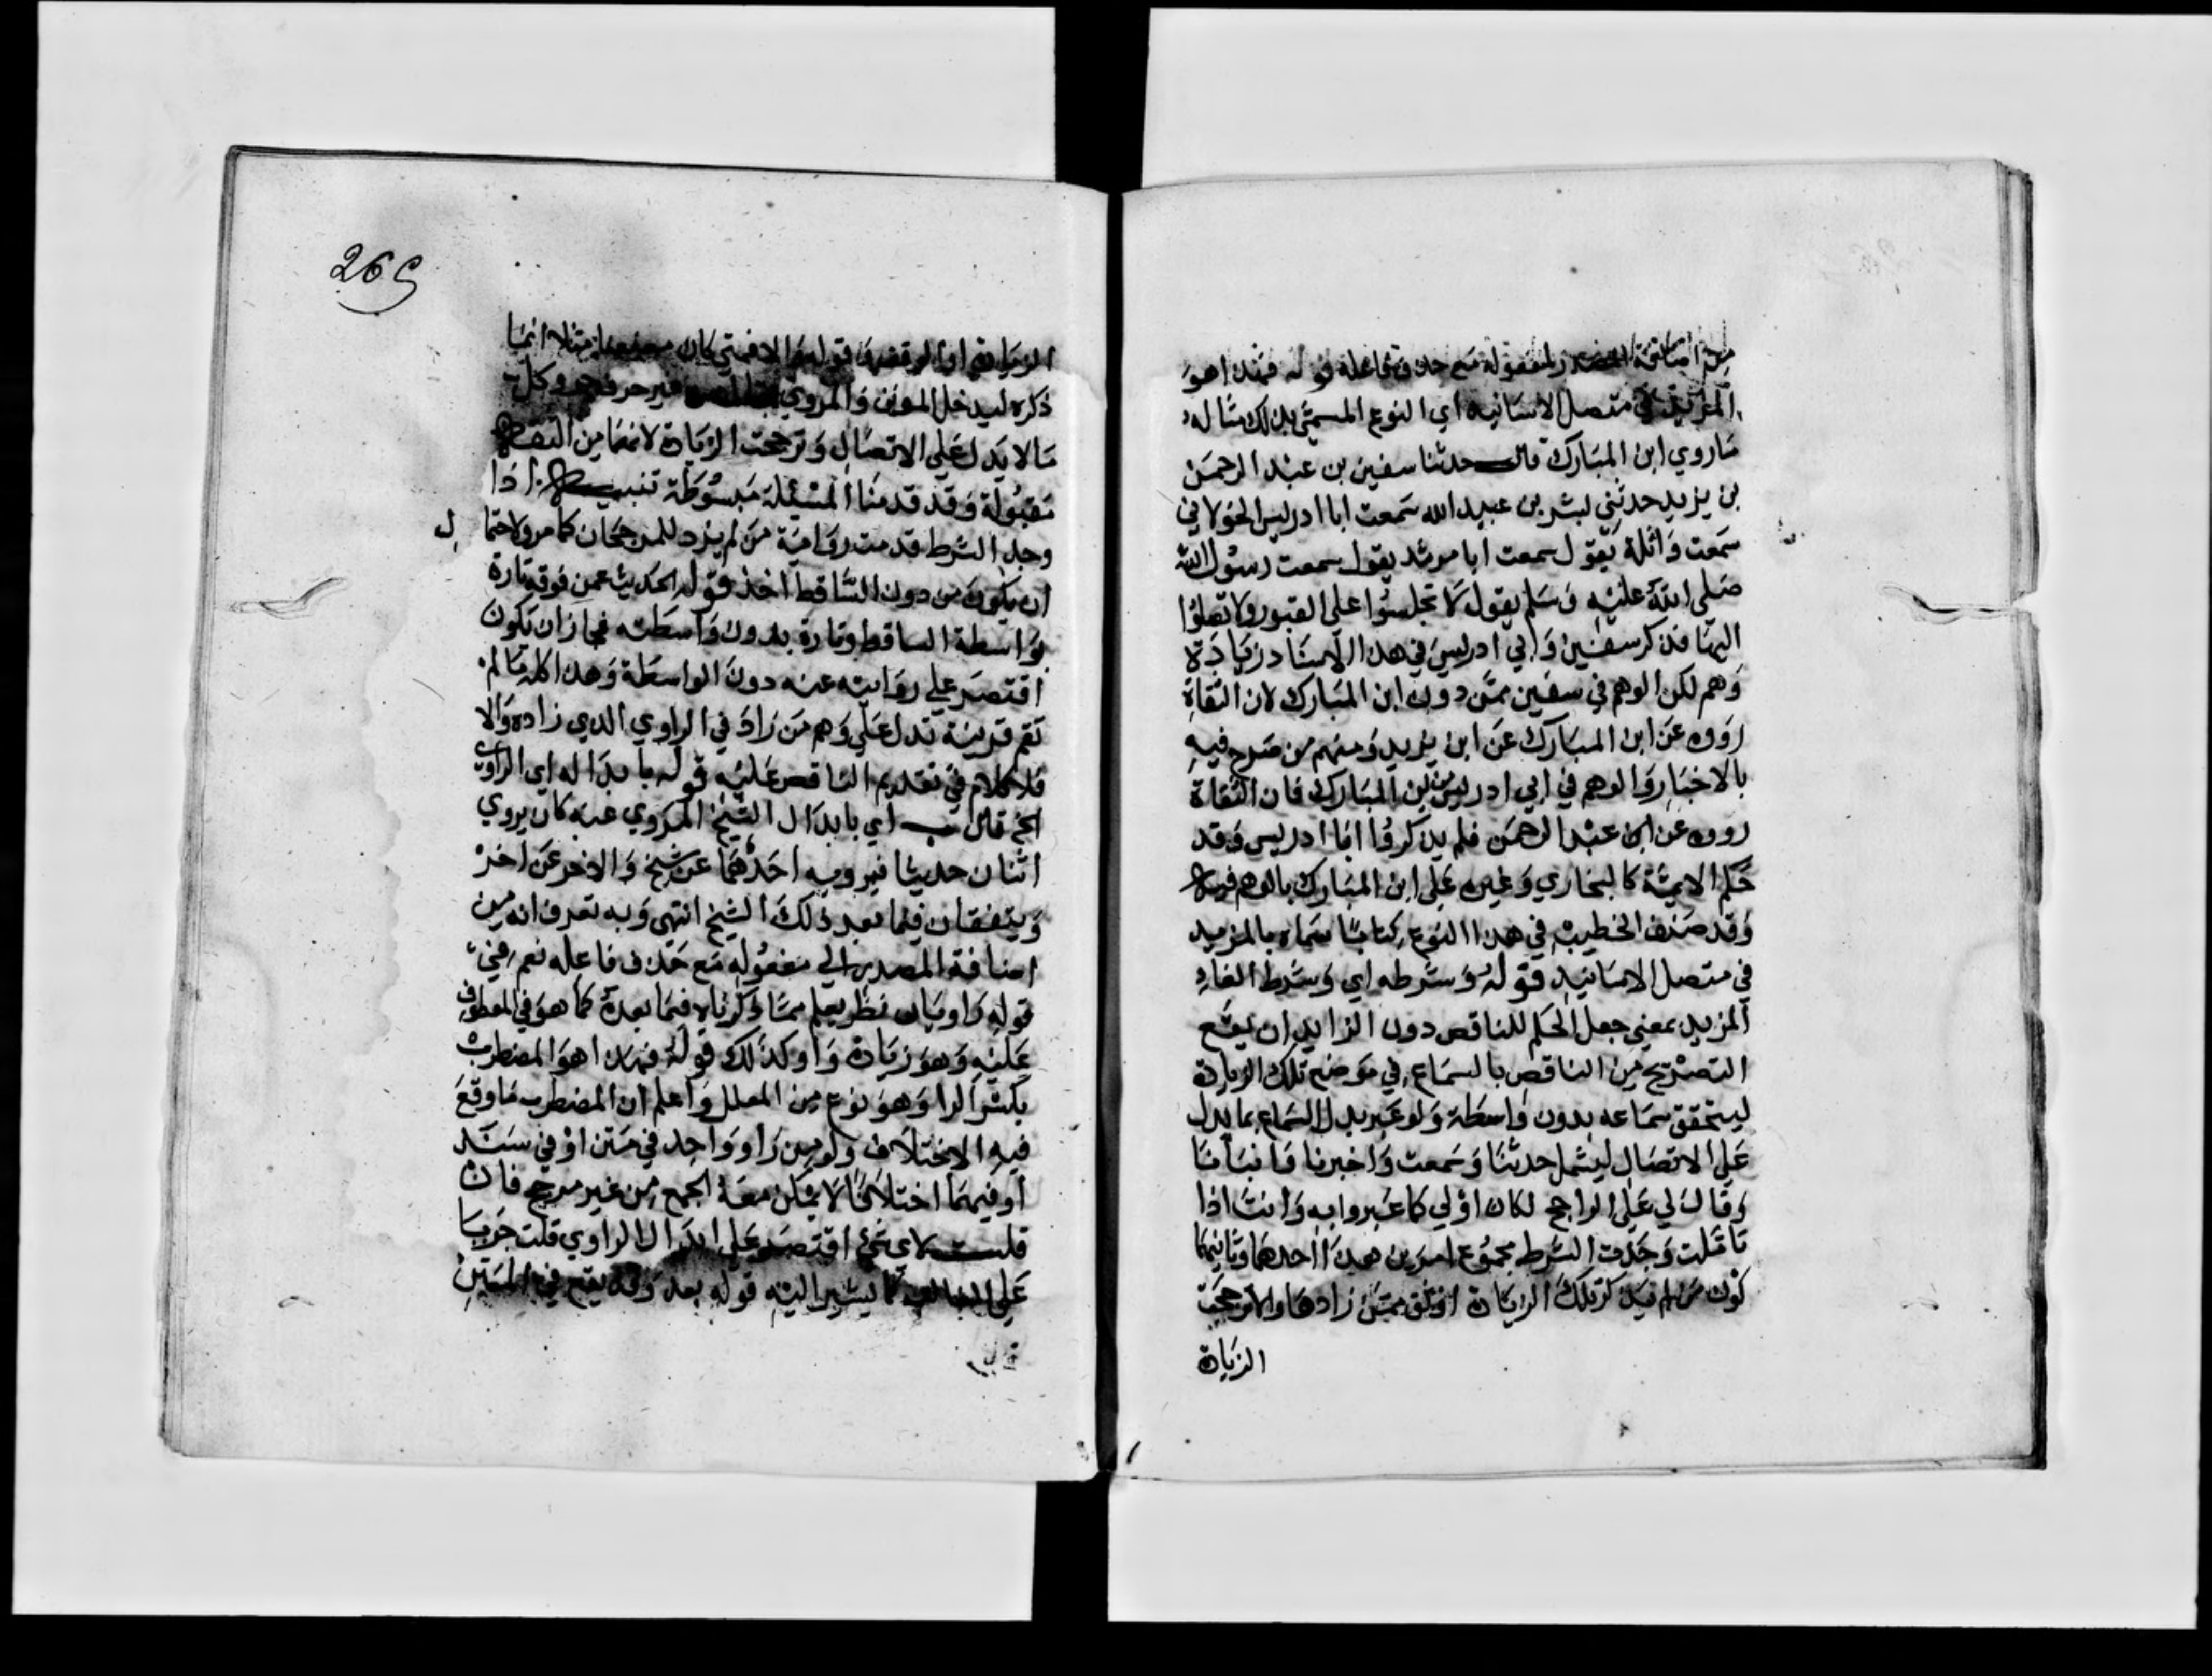 من اضافة المصدر لمفعوله مع حذف فاعله قوله فهذا هو
المزيد في متصل الاسانيد اي النوع المسمي بذلك مثاله
ما روي ابن المبارك قال حدثنا سفين بن عبد الرحمن
بن يزيد حدثني بشر بن عبيد الله سمعت ابا ادريس الخولاني
سمعت واثلة يقول سمعت ابا مرثد يقول سمعت رسول الله
صلي الله عليه وسلم يقول لا تجلسوا علي القبور ولا تصلوا
اليها فذكر سفين وابي ادريس في هذا الاسناد زيادة
وهم لكن الوهم في سفين ممن دون ابن المبارك لان الثقاة
رووه عن ابن المبارك عن ابن يزيد ومنهم من صرح فيه
بالاخبار والوهم في ابي ادريس من ابن المبارك فان الثقاة
رووه عن ابن عبد الرحمن فلم يذكروا ابا ادريس وقد
حكم الايمة كالبخاري وغيره علي ابن المبارك بالوهم فيه
وقد صنف الخطيب في هذا النوع كتابا سماه بالمزيد
في متصل الاسانيد قوله وشرطه اي وشرط
المزيد بمعني جعل الحكم للناقص دون الزايد ان يقع
التصريح من الناقص بالسماع في موضع تلك الزيادة
ليتحقق سماعه بدون واسطة ولو عبر بدل السماع بما يدل
علي الاتصال ليشمل حدثنا وسمعت واخبرنا وانبأنا
وقال لي علي الراجح لكان اولي كما عبروا به وانت اذا
تاملت وجدت الشرط مجموع امرين هذا احدهما وثانيهما
كون من لم يذكر تلك الزيادة اوثق ممن زادها والا ترجحت
الزيادة
265
الزيادة قوله والا فمتي كان معنعنا مثلا انما
ذكره ليدخل المونن والمروي وكل
ما لا يدل علي الاتصال وترجحت الزيادة لانها من الثقة
مقبولة وقد قدمنا المسئلة مبسوطة تنبيه اذا
وجد الشرط قدمت رواية من لم يزد للمرجحان كما مر ولاحتما
ل
ان يكون من دون الساقط اخذ قوله الحديث عمن فوقه تارة
بواسطة الساقط وتارة بدون واسطته فجاز ان يكون
اقتصر علي روايته عنه دون الواسطة وهذا كله ما لم
تقم قرينة تدل علي وهم من زاد في الراوي الذي زاده والا
فلا كلام في تقديم الناقص عليه قوله بابداله اي الراوي
الخ قال اي بابدال الشيخ المروي عنه كان يروي
اثنان حديثا فيرويه احدهما عن شيخ والاخر عن اخر
ويتفقان فيما بعد ذلك الشيخ انتهي وبه تعرف انه من
اضافة المصدر الي مفعوله مع حذف فاعله نعم في
قوله راو بيان نظر يعلم مما ذكرناه فيما بعده كما هو في المعطوف
عليه وهو زيادة واو كذلك قوله فهذا هو المضطرب
بكسر الرا وهو نوع من المعلل واعلم ان المضطرب ما وقع
فيه الاختلاف ولو من راو واحد في متن او في سند
او فيهما اختلافا لا يمكن معه الجمع من غير مرجح فان
قلت لاي شئ اقتصر علي ابدال الراوي قلت جريا
علي الغالب كما يشير اليه قوله بعد وقد يقع في المتن